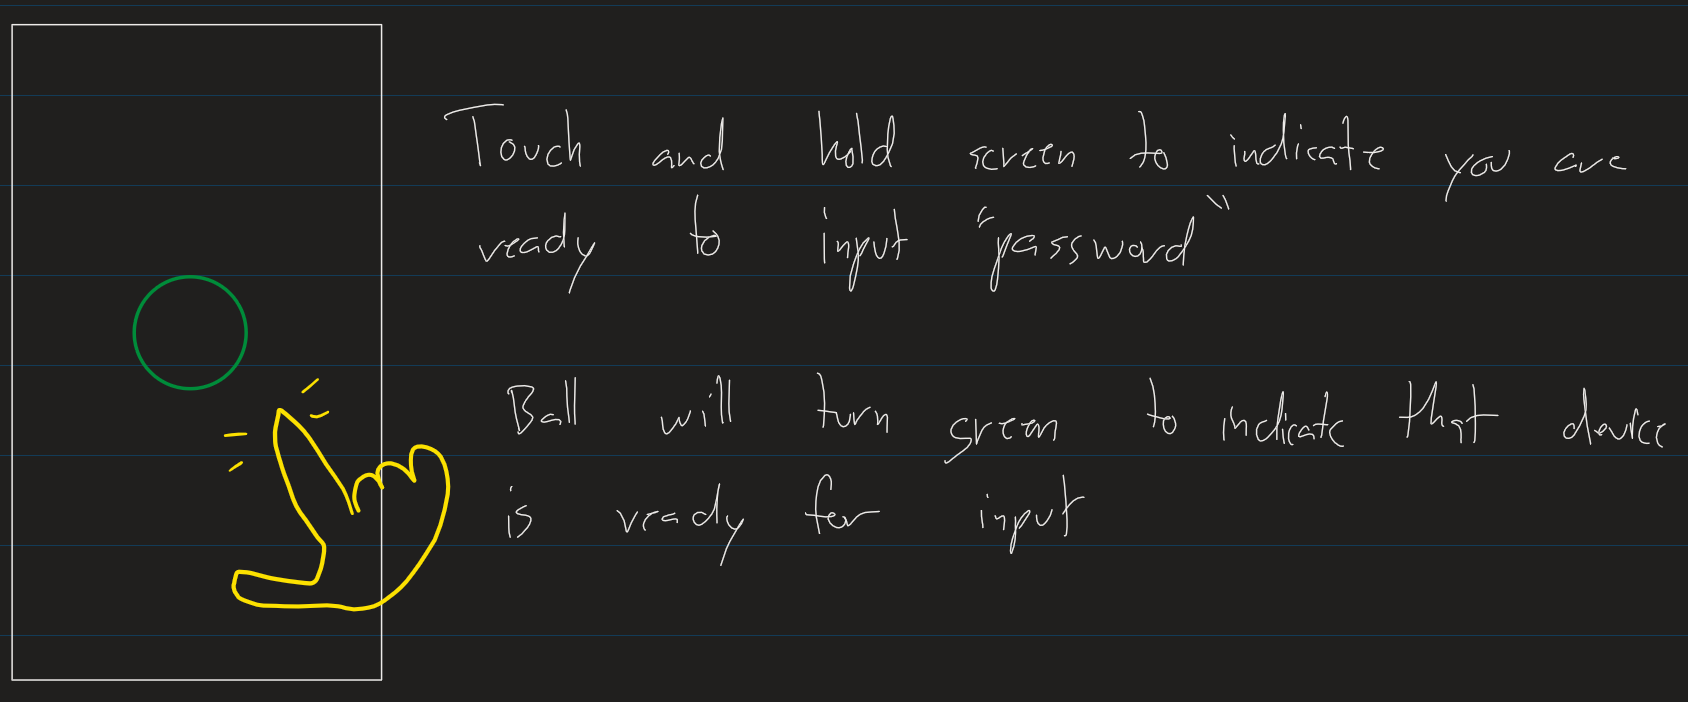 Touch and hold screen to indicate you are
ready to input "password"
Ball will turn green to indicate that device
is ready for input